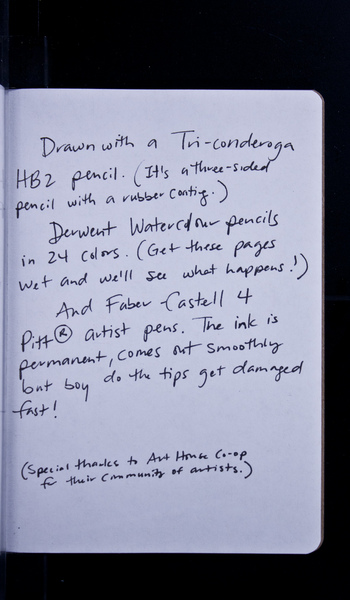 Drawn with a Tri-conderoga
HB2 pencil. (It's a three-sided
pencil with a rubber coating.)
Derwent Watercolour pencils
in 24 colors. (Get these pages
wet and we'll see what happens!)
And Faber-Castell 4
Pitt® artist pens. The ink is
permanent, comes out smoothly
but boy do the tips get damaged
fast!
(Special thanks to Art House Co-op
for their community of artists.)